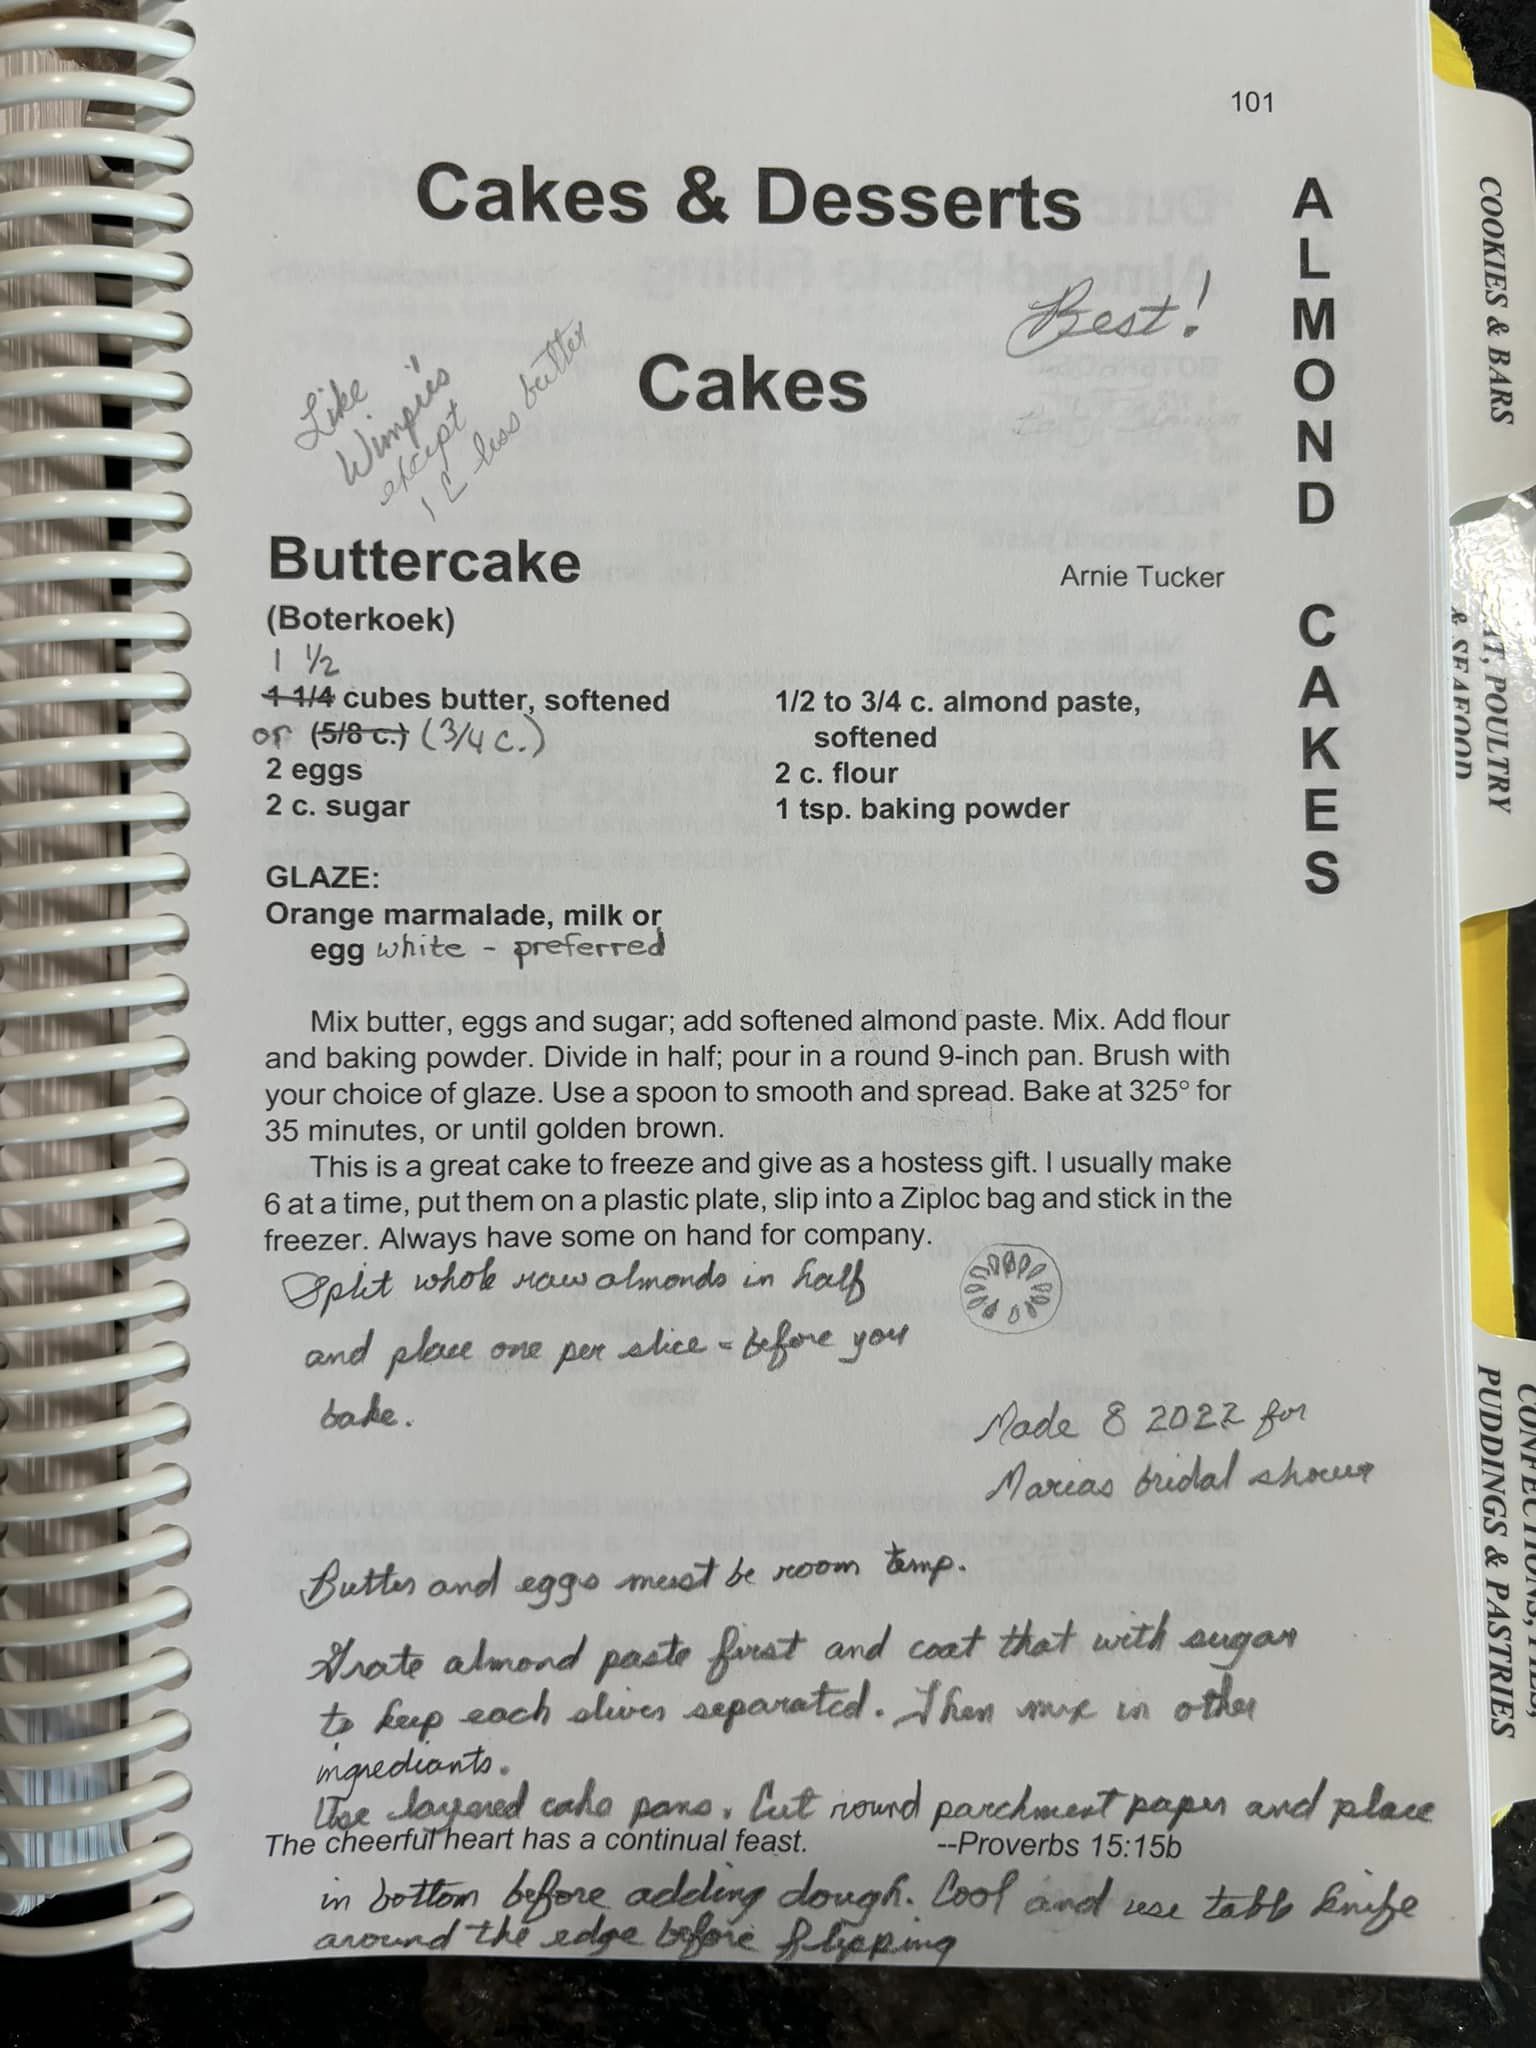 101
Cakes & Desserts
Best!
Cakes
Like
Wimpie's
except
1 C less butter
Buttercake
Arnie Tucker
(Boterkoek)
1 1/2
1 1/4 cubes butter, softened
or (5/8 c.) (3/4 c.)
2 eggs
2 c. sugar
1/2 to 3/4 c. almond paste,
softened
2 c. flour
1 tsp. baking powder
GLAZE:
Orange marmalade, milk or
egg white - preferred
Mix butter, eggs and sugar; add softened almond paste. Mix. Add flour
and baking powder. Divide in half; pour in a round 9-inch pan. Brush with
your choice of glaze. Use a spoon to smooth and spread. Bake at 325° for
35 minutes, or until golden brown.
This is a great cake to freeze and give as a hostess gift. I usually make
6 at a time, put them on a plastic plate, slip into a Ziploc bag and stick in the
freezer. Always have some on hand for company.
Split whole raw almonds in half
and place one per slice - before you
bake.
Made 8 2022 for
Marias bridal shower
Butter and eggs must be room temp.
Grate almond paste first and coat that with sugar
to keep each sliver separated. Then mix in other
ingrediants.
Use layered cake pans. Cut round parchment paper and place
The cheerful heart has a continual feast. --Proverbs 15:15b
in bottom before adding dough. Cool and use table knife
around the edge before flipping
ALMOND CAKES
COOKIES & BARS
POULTRY
& SEAFOOD
CONFECTIONS,
PUDDINGS & PASTRIES